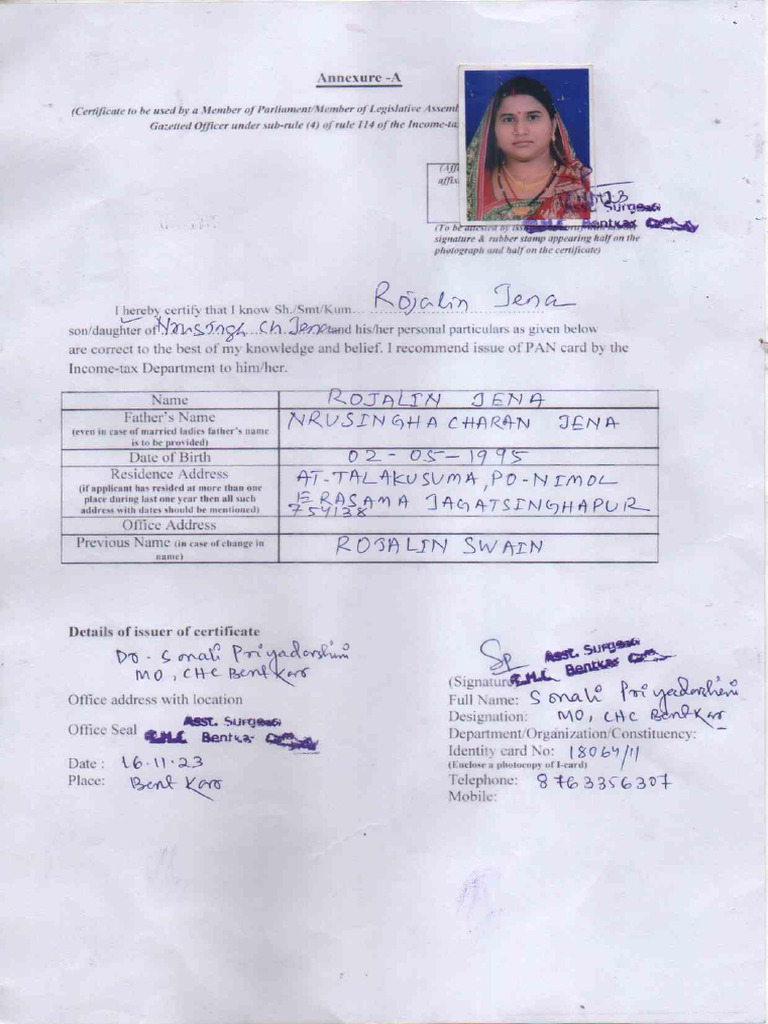 Annexure -A
(Certificate to be used by a Member of Parliament/Member of Legislative Assemb
Gazetted Officer under sub-rule (4) of rule 114 of the Income-ta
(Aff
affix
Asst. Surgeon
Bentkar
(To be attested by
signature & rubber stamp appearing half on the
photograph and half on the certificate)
I hereby certify that I know Sh./Smt/Kum... Rojalin Jena
son/daughter of Nrusingh Ch. Jena and his/her personal particulars as given below
are correct to the best of my knowledge and belief. I recommend issue of PAN card by the
Income-tax Department to him/her.
Name ROJALIN JENA
Father's Name NRUSINGHA CHARAN JENA
(even in case of married ladies father's name
is to be provided)
Date of Birth 02-05-1995
Residence Address AT-TALAKUSUMA, PO-NIMOL
(if applicant has resided at more than one
place during last one year then all such ERASAMA JAGATSINGHAPUR
address with dates should be mentioned) 754138
Office Address
Previous Name (in case of change in ROJALIN SWAIN
name)
Details of issuer of certificate
Dr - Sonali Priyadarshini
MO, CHC Bentkar
Asst. Surgeon
C.H.C Bentkar
(Signature
Office address with location
Full Name: Sonali Priyadarshini
Designation: MO, CHC Bentkar
Office Seal Asst. Surgeon
C.H.C Bentkar
Department/Organization/Constituency:
Identity card No: 18064/11
(Enclose a photocopy of I-card)
Date : 16.11.23
Place: Bentkar
Telephone: 8763356307
Mobile: